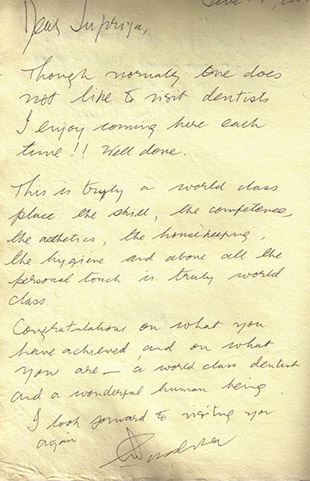 Dear Supriya,
Though normally one does
not like to visit dentists
I enjoy coming here each
time!! Well done.
This is truly a world class
place the skill, the competence,
the aesthetics, the housekeeping,
the hygiene and above all the
personal touch is truly world
class
Congratulations on what you
have achieved and on what
you are — a world class dentist
and a wonderful human being.
I look forward to visiting you
again